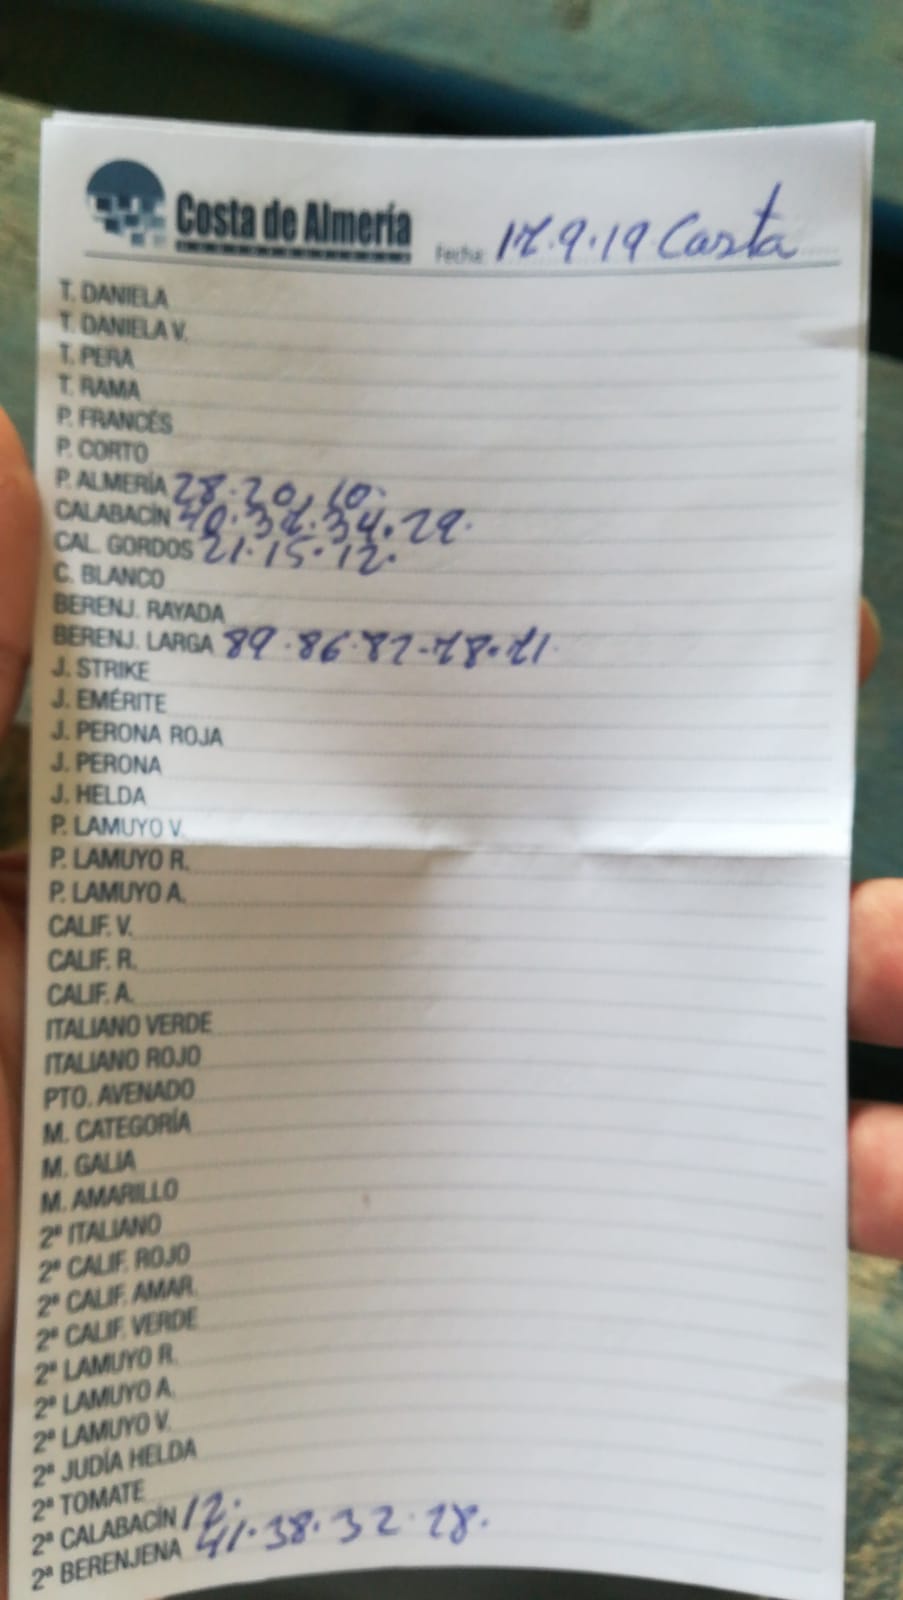 Costa de Almería
Fecha: 17.9.19 Costa
T. DANIELA
T. DANIELA V.
T. PERA
T. RAMA
P. FRANCÉS
P. CORTO
P. ALMERÍA 28.20.10.
CALABACÍN 40.37.34.29.
CAL. GORDOS 21.15.12.
C. BLANCO
BERENJ. RAYADA
BERENJ. LARGA 89.86.82-78.71.
J. STRIKE
J. EMÉRITE
J. PERONA ROJA
J. PERONA
J. HELDA
P. LAMUYO V.
P. LAMUYO R.
P. LAMUYO A.
CALIF. V.
CALIF. R.
CALIF. A.
ITALIANO VERDE
ITALIANO ROJO
PTO. AVENADO
M. CATEGORÍA
M. GALIA
M. AMARILLO
2ª ITALIANO
2ª CALIF. ROJO
2ª CALIF. AMAR.
2ª CALIF. VERDE
2ª LAMUYO R.
2ª LAMUYO A.
2ª LAMUYO V.
2ª JUDÍA HELDA
2ª TOMATE
2ª CALABACÍN 12.
2ª BERENJENA 41.38.32.28.